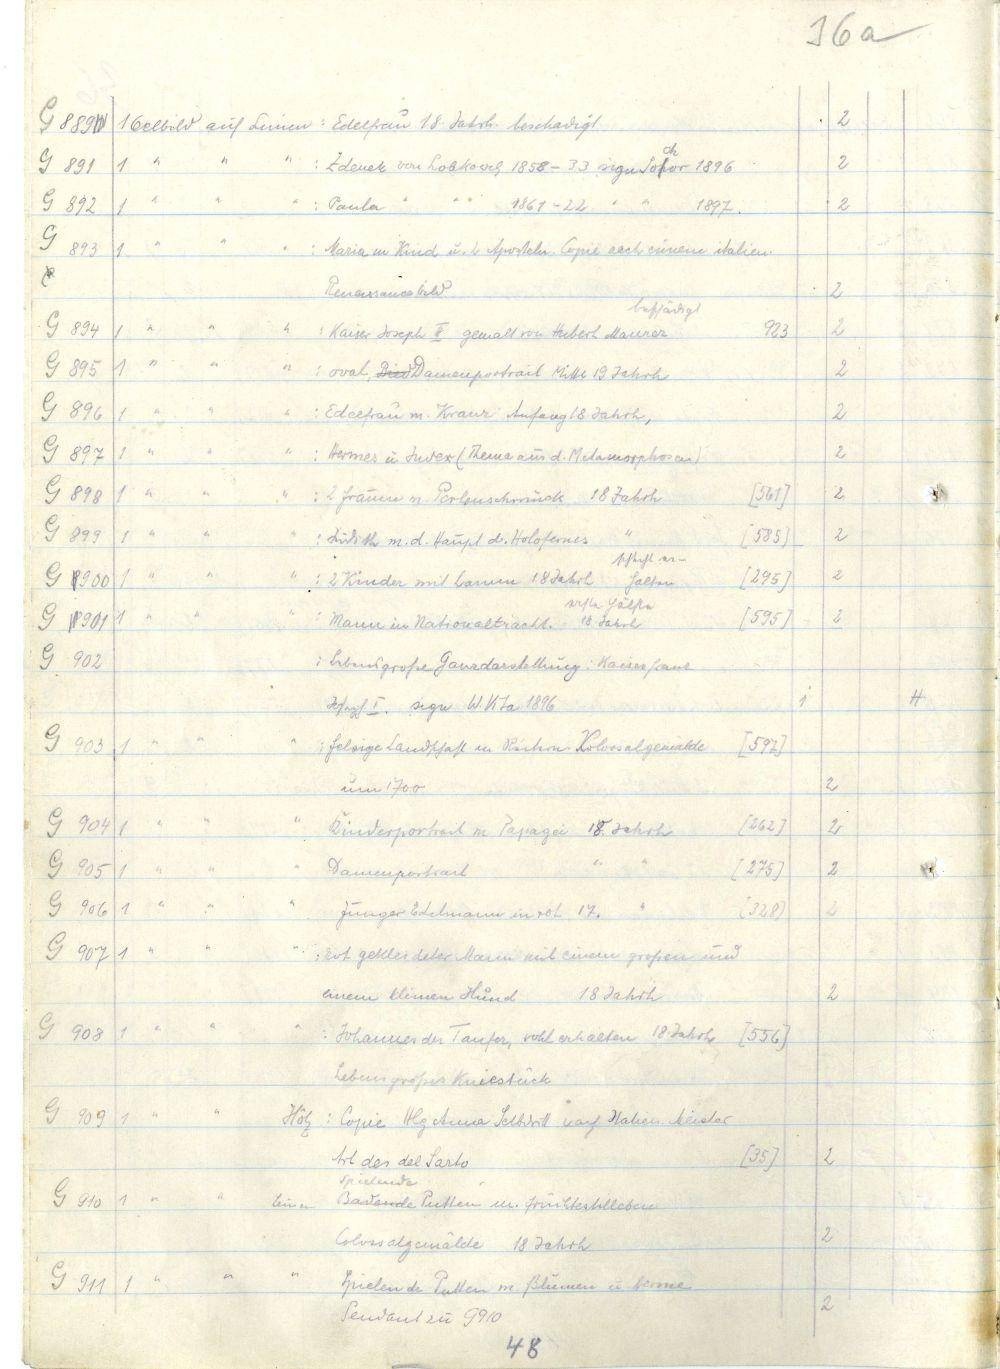 36a
G 889 1 Oelbild auf Leinen : Edelfrau 18. Jahrh. beschädigt 2
G 891 1 " " " : Zdenek von Lobkowitz 1858-33 sign 1896 2
G 892 1 " " " : Paula " " " 1861-22 " " 1897. 2
G 893 1 " " " : Maria m Kind u. 2 Aposteln. Copie nach einem italien.
Renaissancebild 2
beschädigt
G 894 1 " " " : Kaiser Joseph II gemalt von Hubert Maurer 923 2
G 895 1 " " " : oval, Damenportrait Mitte 19 Jahrh 2
G 896 1 " " " : Edelfrau m. Kranz Anfang 18 Jahrh, 2
G 897 1 " " " : Hermes u (Thema aus d. Metamorphosen) 2
G 898 1 " " " : 2 Frauen m. Perlenschmuck 18 Jahrh [361] 2
G 899 1 " " " : Judith m. d. Haupt d. Holofernes " [585] 2
schlecht er-
G 900 1 " " " : 2 Kinder mit Lamm 18 Jahrh halten [295] 2
erste Hälfte
G 901 1 " " " : Mann in Nationaltracht. 18 Jahrh [595] 2
G 902 : Lebensgroße Ganzdarstellung: Kaiser Franz
Josef I. sign 1896 1 H
G 903 1 " " " : felsige Landschaft m Kolossalgemälde [597]
um 1700 2
G 904 1 " " " Kinderportrait m Papagei 18. Jahrh [262] 2
G 905 1 " " " Damenportrait " " [275] 2
G 906 1 " " " Junger Edelmann in rot 17. " [328] 2
G 907 1 " " " : rot gekleideter Mann mit einem großen und
einem kleinen Hund 18 Jahrh 2
G 908 1 " " " : Johannes der Taufer, wohl erhalten 18. Jahrh [556]
Lebensgroßes Kniestück
G 909 1 " " Holz : Copie Hlg Anna Selbdritt nach Italien. Meister
Art des del Sarto [35] 2
spielende
G 910 1 " " Leinen Badende Putten m. Früchtestilleben
Colossalgemälde 18 Jahrh 2
G 911 1 " " " Spielende Putten m Blumen u Herme
Pendant zu G910 2
48